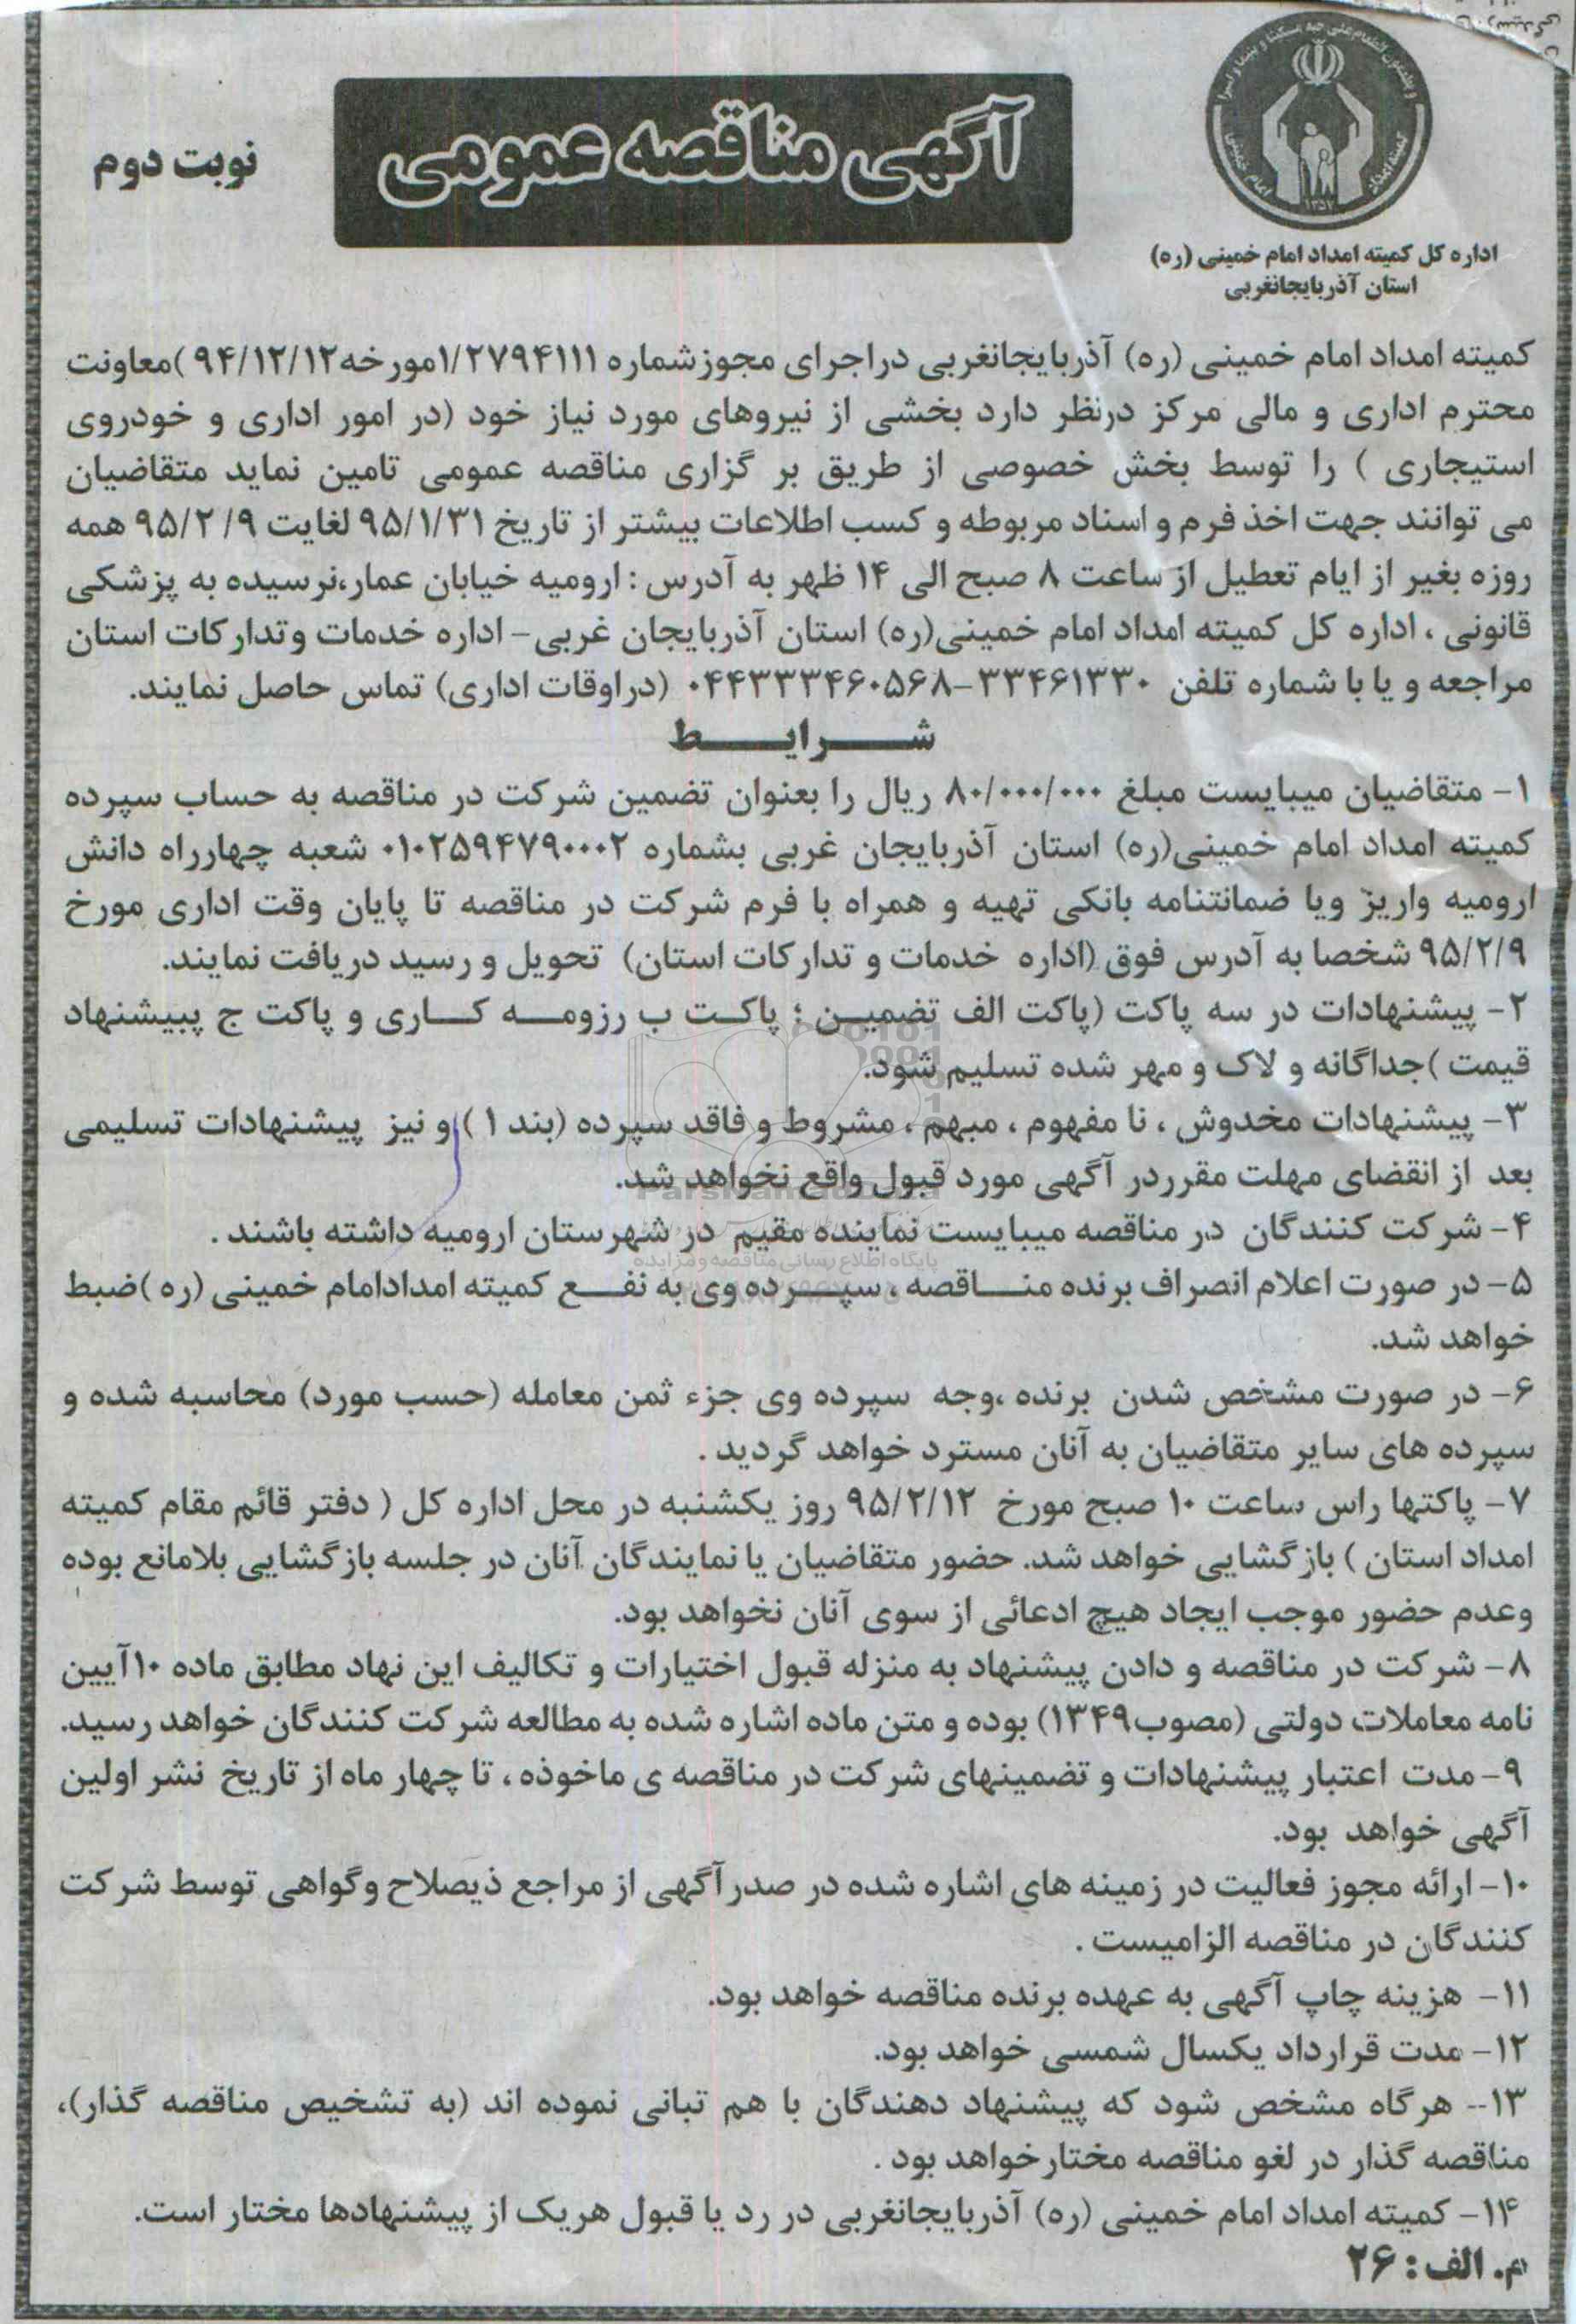 آگهی مناقصه عمومی
نوبت دوم
کمیته امداد
امام خمینی
۱۳۵۷
اداره کل کمیته امداد امام خمینی (ره)
استان آذربایجانغربی
کمیته امداد امام خمینی (ره) آذربایجانغربی دراجرای مجوزشماره ۱/۲۷۹۴۱۱۱مورخه۹۴/۱۲/۱۲ )معاونت
محترم اداری و مالی مرکز درنظر دارد بخشی از نیروهای مورد نیاز خود (در امور اداری و خودروی
استیجاری ) را توسط بخش خصوصی از طریق بر گزاری مناقصه عمومی تامین نماید متقاضیان
می توانند جهت اخذ فرم و اسناد مربوطه و کسب اطلاعات بیشتر از تاریخ ۹۵/۱/۳۱ لغایت ۹۵/۲/۹ همه
روزه بغیر از ایام تعطیل از ساعت ۸ صبح الی ۱۴ ظهر به آدرس : ارومیه خیابان عمار،نرسیده به پزشکی
قانونی ، اداره کل کمیته امداد امام خمینی(ره) استان آذربایجان غربی- اداره خدمات وتدارکات استان
مراجعه و یا با شماره تلفن ۳۳۴۶۱۳۳۰-۰۴۴۳۳۳۴۶۰۵۶۸ (دراوقات اداری) تماس حاصل نمایند.
شـــرایـــط
۱- متقاضیان میبایست مبلغ ۸۰/۰۰۰/۰۰۰ ریال را بعنوان تضمین شرکت در مناقصه به حساب سپرده
کمیته امداد امام خمینی(ره) استان آذربایجان غربی بشماره ۰۱۰۲۵۹۴۷۹۰۰۰۲ شعبه چهارراه دانش
ارومیه واریز ویا ضمانتنامه بانکی تهیه و همراه با فرم شرکت در مناقصه تا پایان وقت اداری مورخ
۹۵/۲/۹ شخصا به آدرس فوق (اداره خدمات و تدارکات استان) تحویل و رسید دریافت نمایند.
۲- پیشنهادات در سه پاکت (پاکت الف تضمیـن ؛ پاکـت ب رزومـه کـاری و پاکت ج پبیشنهاد
قیمت )جداگانه و لاک و مهر شده تسلیم شود.
۳- پیشنهادات مخدوش ، نا مفهوم ، مبهم ، مشروط و فاقد سپرده (بند ۱ ) و نیز پیشنهادات تسلیمی
بعد از انقضای مهلت مقرردر آگهی مورد قبول واقع نخواهد شد.
۴- شرکت کنندگان در مناقصه میبایست نماینده مقیم در شهرستان ارومیه داشته باشند .
پایگاه اطلاع رسانی مناقصه ومزایده
۵- در صورت اعلام انصراف برنده منـاقصه ، سپـرده وی به نفـع کمیته امدادامام خمینی (ره )ضبط
خواهد شد.
۶- در صورت مشخص شدن برنده ،وجه سپرده وی جزء ثمن معامله (حسب مورد) محاسبه شده و
سپرده های سایر متقاضیان به آنان مسترد خواهد گردید .
۷- پاکتها راس ساعت ۱۰ صبح مورخ ۹۵/۲/۱۲ روز یکشنبه در محل اداره کل ( دفتر قائم مقام کمیته
امداد استان ) بازگشایی خواهد شد. حضور متقاضیان یا نمایندگان آنان در جلسه بازگشایی بلامانع بوده
وعدم حضور موجب ایجاد هیچ ادعائی از سوی آنان نخواهد بود.
۸- شرکت در مناقصه و دادن پیشنهاد به منزله قبول اختیارات و تکالیف این نهاد مطابق ماده ۱۰آیین
نامه معاملات دولتی (مصوب۱۳۴۹) بوده و متن ماده اشاره شده به مطالعه شرکت کنندگان خواهد رسید.
۹-مدت اعتبار پیشنهادات و تضمینهای شرکت در مناقصه ی ماخوذه ، تا چهار ماه از تاریخ نشر اولین
آگهی خواهد بود.
۱۰- ارائه مجوز فعالیت در زمینه های اشاره شده در صدرآگهی از مراجع ذیصلاح وگواهی توسط شرکت
کنندگان در مناقصه الزامیست .
۱۱- هزینه چاپ آگهی به عهده برنده مناقصه خواهد بود.
۱۲- مدت قرارداد یکسال شمسی خواهد بود.
۱۳-- هرگاه مشخص شود که پیشنهاد دهندگان با هم تبانی نموده اند (به تشخیص مناقصه گذار)،
مناقصه گذار در لغو مناقصه مختارخواهد بود .
۱۴- کمیته امداد امام خمینی (ره) آذربایجانغربی در رد یا قبول هریک از پیشنهادها مختار است.
م. الف : ۲۶